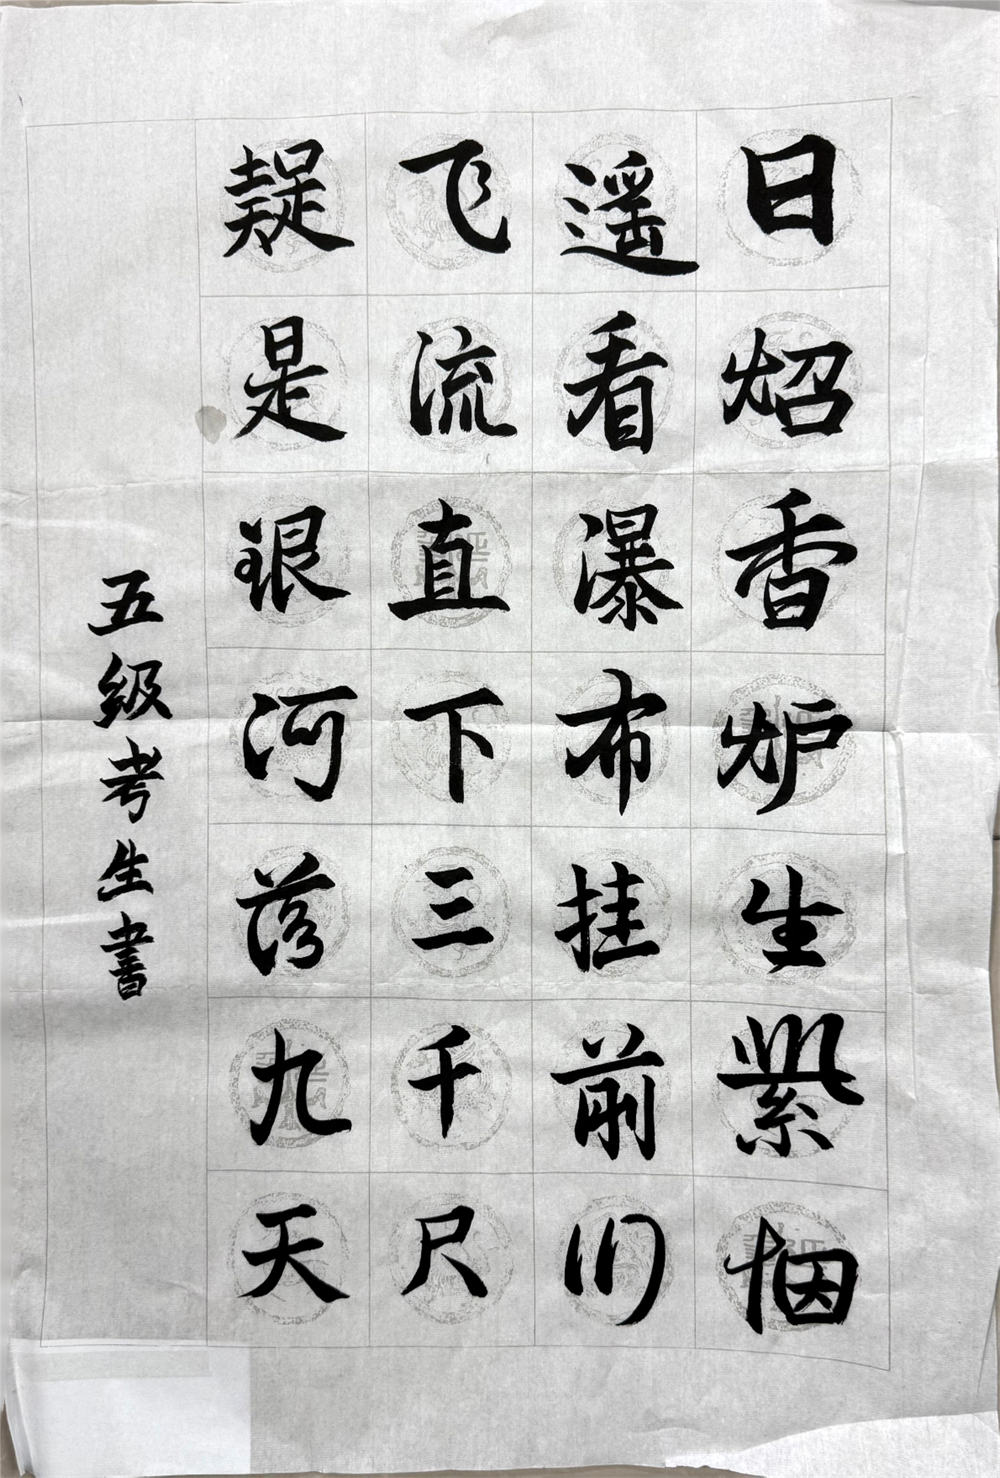 日炤香炉生紫烟
遥看瀑布挂前川
飞流直下三千尺
疑是银河落九天
五級考生書